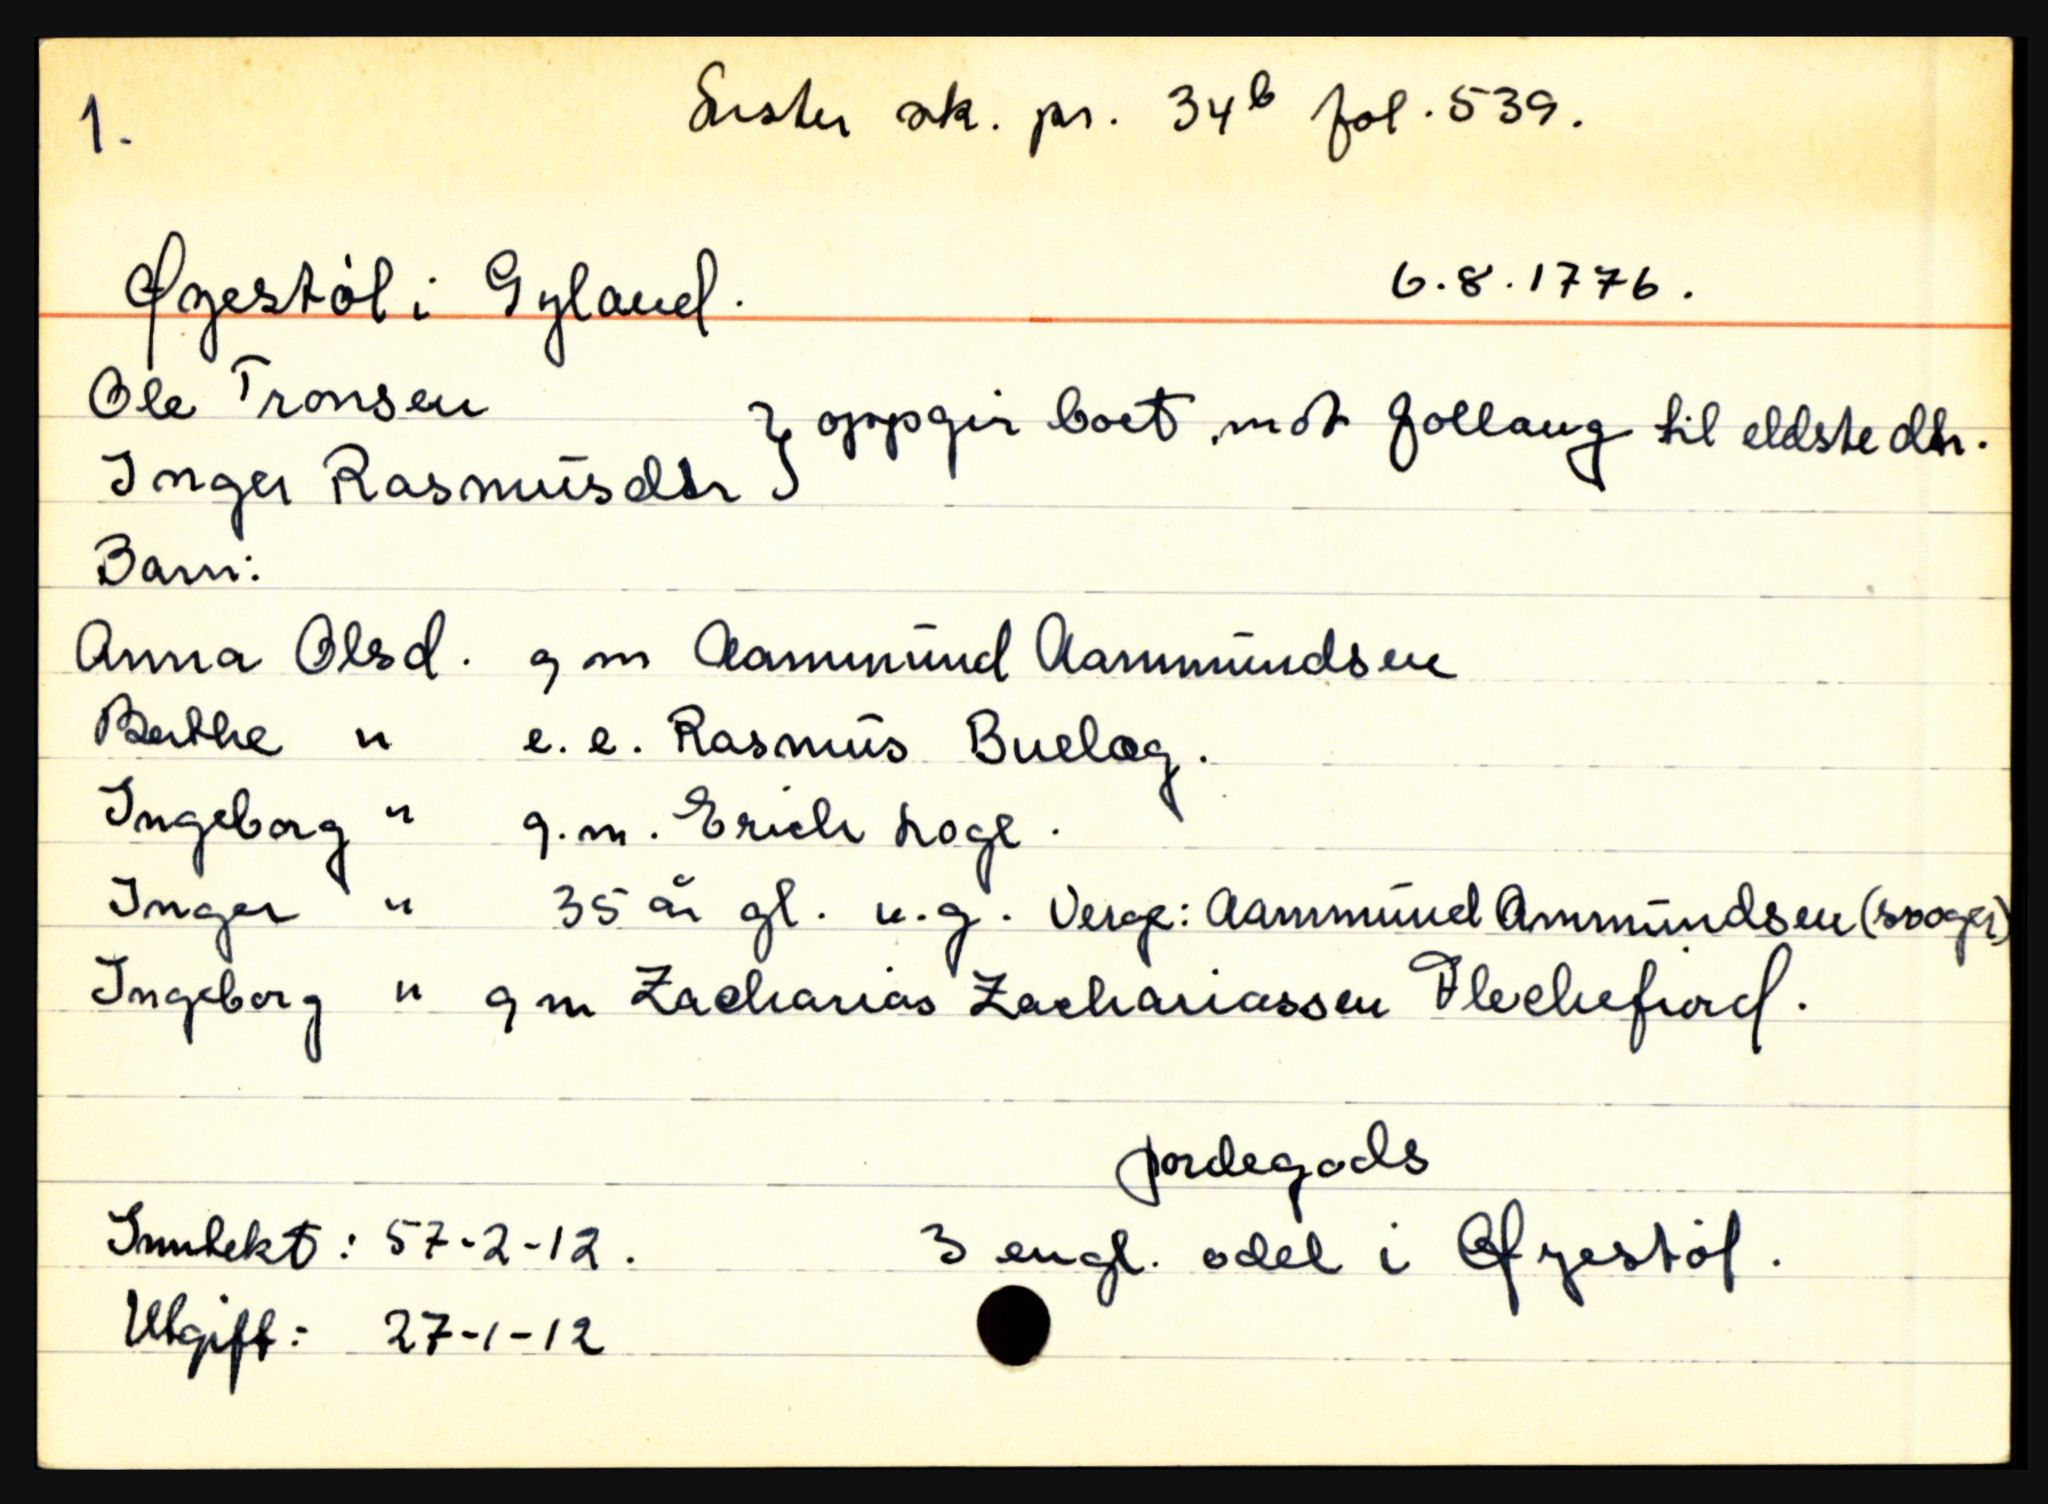 1.
Lister sk. pr. 34b fol. 539.
Øyestøl i Gyland. 6.8.1776.
Ole Tronsen
} oppgir boet mot follaug til eldste dtr.
Inger Rasmusdtr
Barn:
Anna Olsd. g m Aammund Aammundsen
Berthe " e. e. Rasmus Buelæg.
Ingeborg " g.m. Erich Loge.
Inger " 35 år gl. u.g. Verge: Aammund Ammundsen (svoger)
Ingeborg " g m Zacharias Zachariassen Flechefiord.
Jordegods
Inntekt: 57-2-12. 3 engl. odel i Øyestøl.
Utgift: 27-1-12